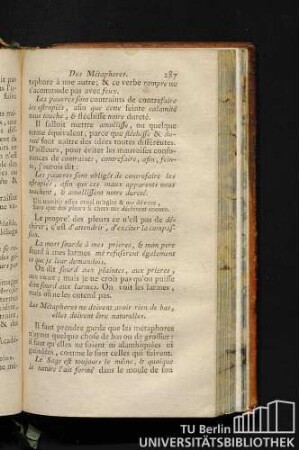 Des Métaphores. 287
taphore à une autre; & ce verbe rompre ne
s'accommode pas avec feux.
Les pauvres sont contraints de contrefaire
les estropiés, afin que cette feinte calamité
nous touche, & fléchisse notre dureté.
Il falloit mettre amollisse, ou quelque
terme équivalent, parce que fléchisse & dureté
font naître des idées toutes différentes.
D'ailleurs, pour éviter les mauvaises consonances
de contraints, contrefaire, afin, feinte,
j'aurois dit:
Les pauvres sont obligés de contrefaire les
estropiés, afin que ces maux apparents nous
touchent, & amollissent notre dureté.
sans que des pleurs si chers me déchirent
Le propre des pleurs ce n'est pas de déchirer,
c'est d'attendrir, d'exciter la compassion.
La mort sourde à mes prieres, & mon pere
sourd à mes larmes me refuserent également
ce que je leur demandois.
On dit sourd aux plaintes, aux prieres,
aux vœux; mais je ne crois pas qu'on puisse
dire sourd aux larmes. On voit les larmes,
mais on ne les entend pas.
Les Métaphores ne doivent avoir rien de bas,
elles doivent être naturelles.
Il faut prendre garde que les métaphores
n'ayent quelque chose de bas ou de grossier:
il faut qu'elles ne soient ni alambiquées ni
guindées, comme le sont celles qui suivent.
Le Sage est toujours le même, & quoique
la nature l'ait formé dans le moule de son
TU Berlin
UNIVERSITÄTSBIBLIOTHEK